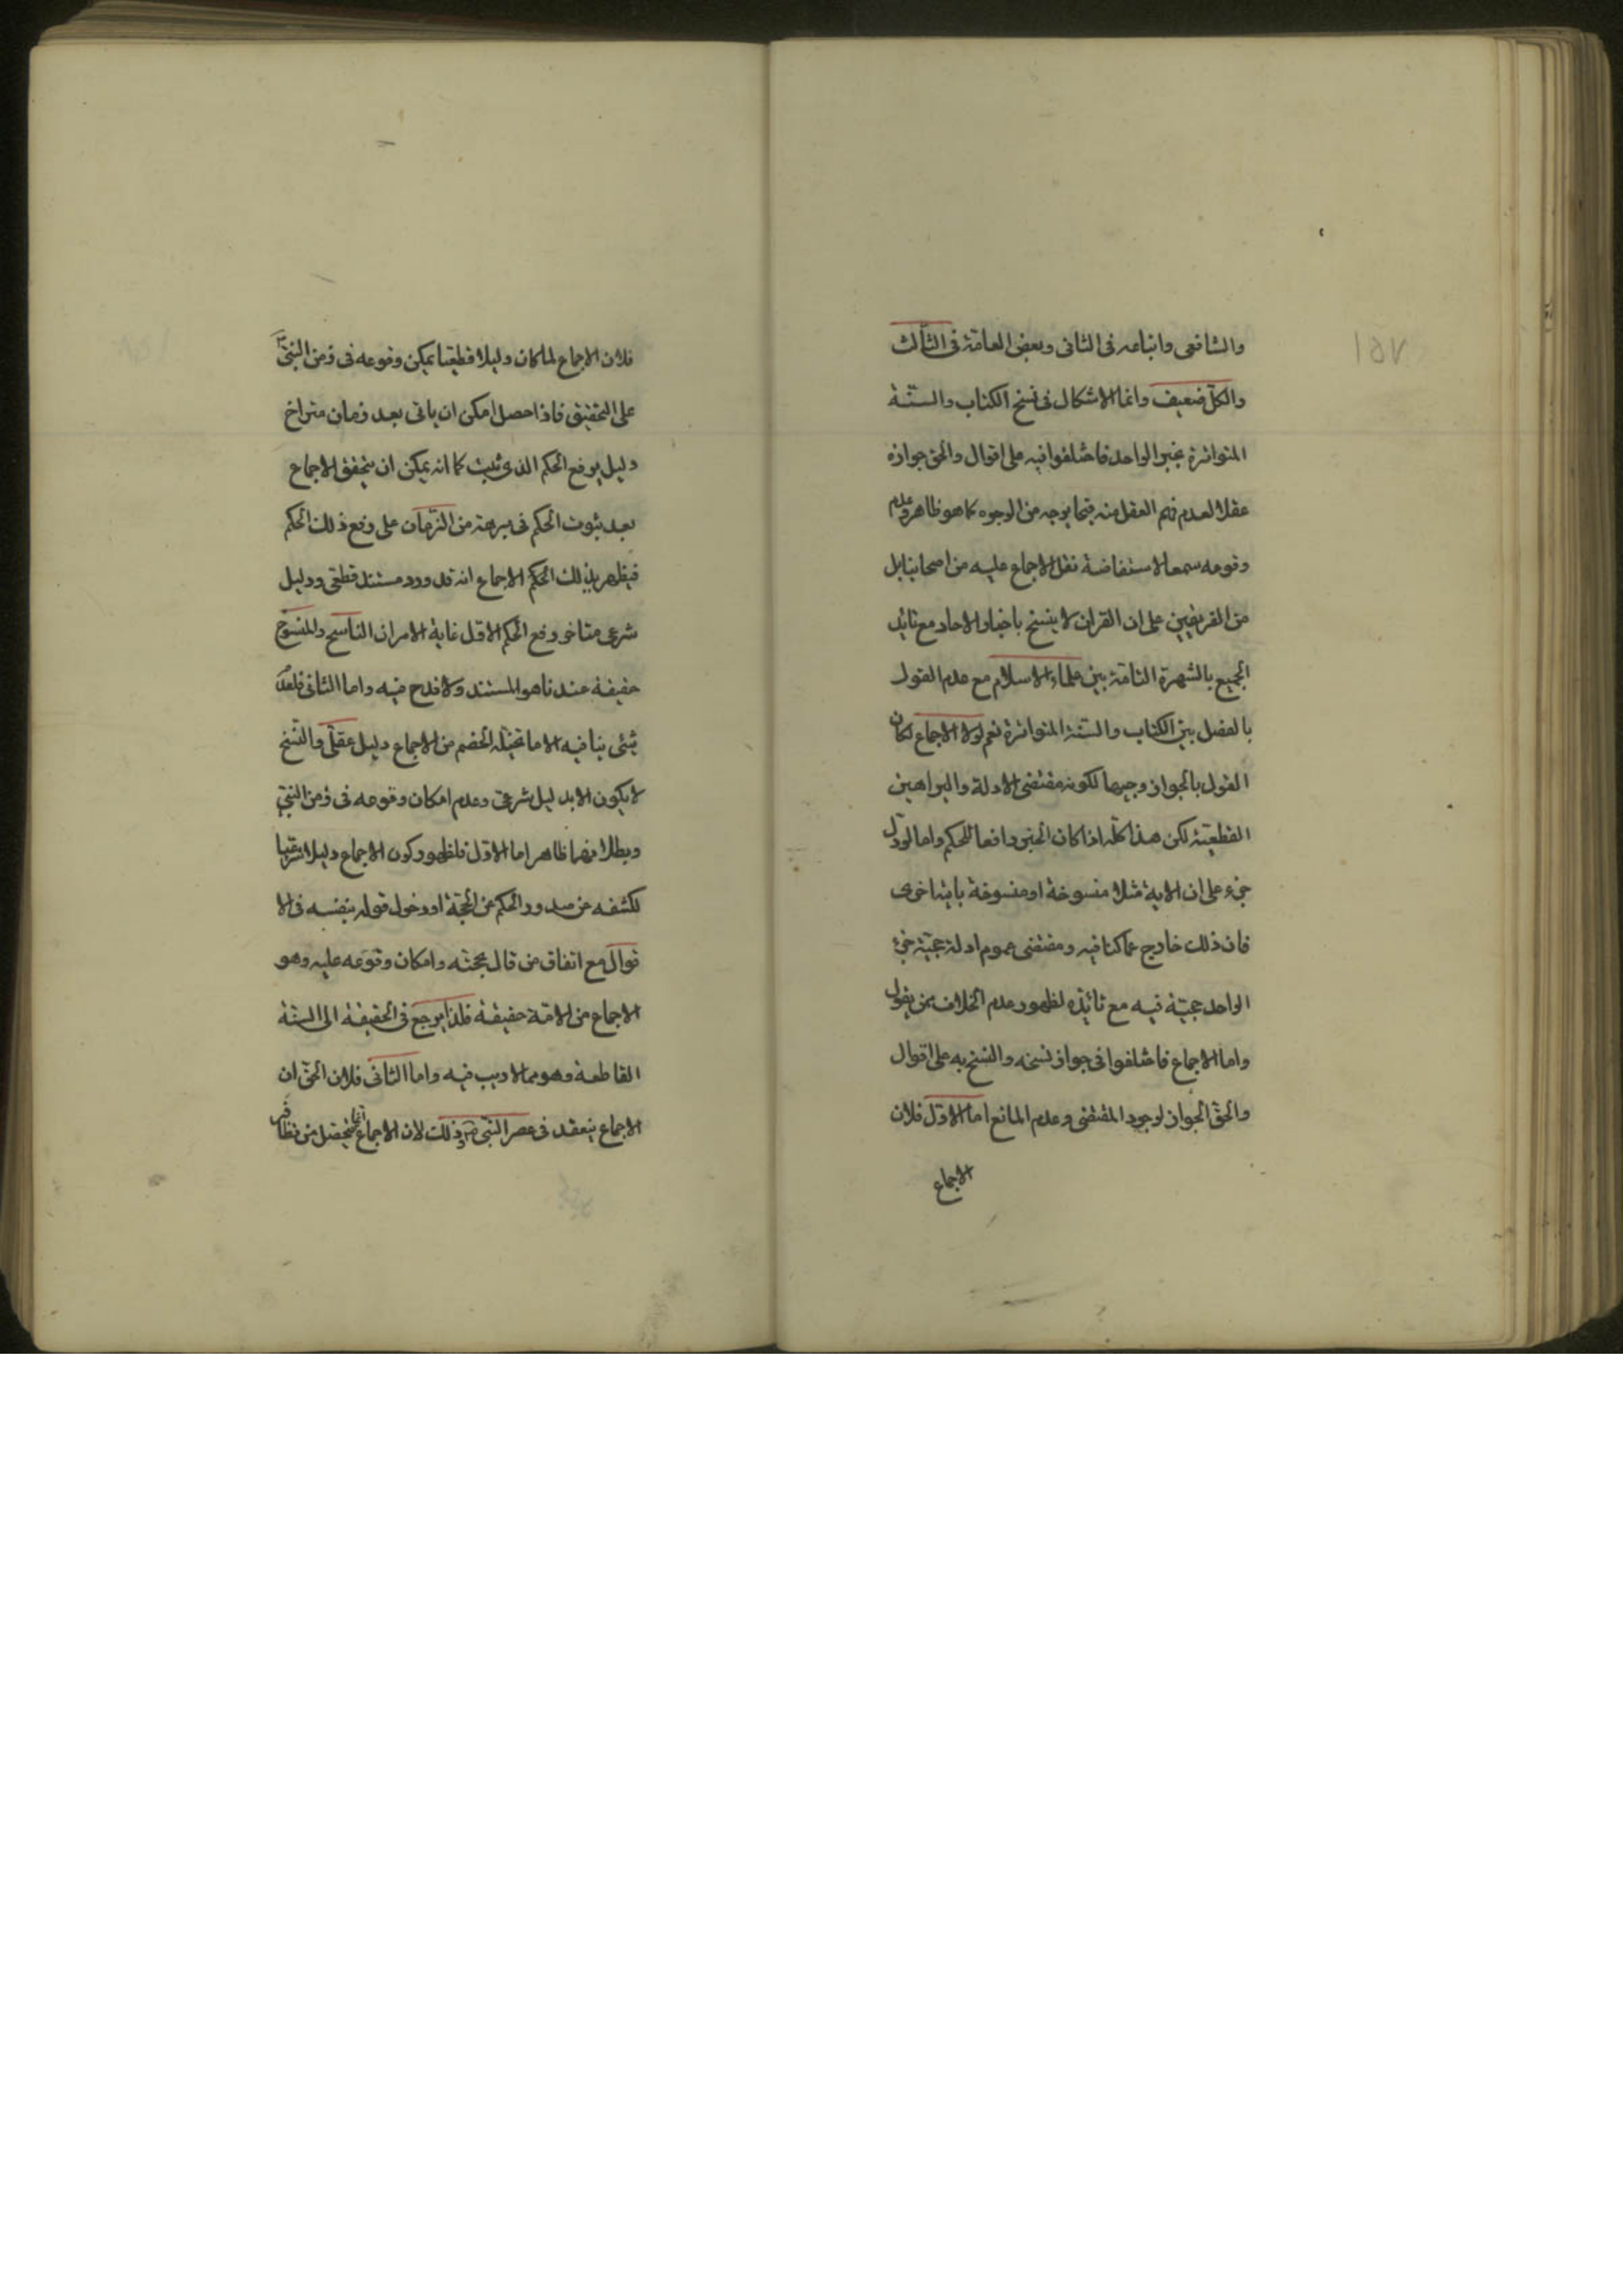 ١٥٧
والشافعى واتباعه فى الثانى وبعض العامّة فى الثالث
والكلّ ضعيف وانما الاشكال فى نسخ الكتاب والسنّة
المتواترة بخبر الواحد فاختلفوا فيه على اقوال والحق جوازه
عقلا لعدم فهم العقل منه قبحا بوجه من الوجوه كما هو ظاهر وعدم
وقوعه سمعا لاستفاضة نقل الاجماع عليه من اصحابنا بل
من الفريقين على ان القران لا ينسخ باخبار الاحاد مع تائيد
الجميع بالشهرة التامة بين علماء الاسلام مع عدم القول
بالفصل بين الكتاب والسنة المتواترة نعم لولا الاجماع لكان
القول بالجواز وجيها لكونه مقتضى الادلة والبراهين
القطعيّة لكن هذا كلّه اذا كان الخبر دافعا للحكم واما لو دلّ
خبر على ان الاية مثلا منسوخة او منسوخة باية اخرى
فان ذلك خارج عمّا كنا فيه ومقتضى عموم ادلة حجيّة خبر
الواحد حجيّة فيه مع تائيده لظهور عدم الخلاف ممن يقول
واما الاجماع فاختلفوا فى جواز نسخه والنسخ به على اقوال
والحقّ الجواز لوجود المقتضى وعدم المانع اما الاوّل فلان
الاجماع
فلان الاجماع لما كان دليلا قطعيا يمكن وقوعه فى زمن النبىّ ص
على التحقيق فاذا حصل امكن ان ياتى بعد زمان متراخ
دليل يرفع الحكم الذى ثبت كما انه يمكن ان يتحقق الاجماع
بعد ثبوت الحكم فى برهة من الزمان على رفع ذلك الحكم
فيظهر بذلك الحكم الاجماع انه قد ورد مستند قطعى ودليل
شرعى متاخر رفع الحكم الاوّل غاية الامر ان الناسخ والمنسوخ
حقيقة عندنا هو المستند ولا قدح فيه واما الثانى فلعدم
شئى ينافيه الا ما تخيّله الخصم من الاجماع دليل عقلىّ والنسخ
لا يكون الا بدليل شرعى وعدم امكان وقوعه فى زمن النبىّ
وبطلانهما ظاهر اما الاوّل فلظهور كون الاجماع دليلا شرعيا
لكشفه عن صدور الحكم عن الحجّة او دخول قوله بنفسه فى الا
قوال مع اتفاق من قال بحجّته وامكان وقوعه عليه وهو
الاجماع من الامّة حقيقة فلذا يرجع فى الحقيقة الى السنّة
القاطعة وهو مما لا ريب فيه واما الثانى فلان الحقّ ان
الاجماع ينعقد فى عصر النبى ص وذلك لان الاجماع انما يتحصل من تظافر